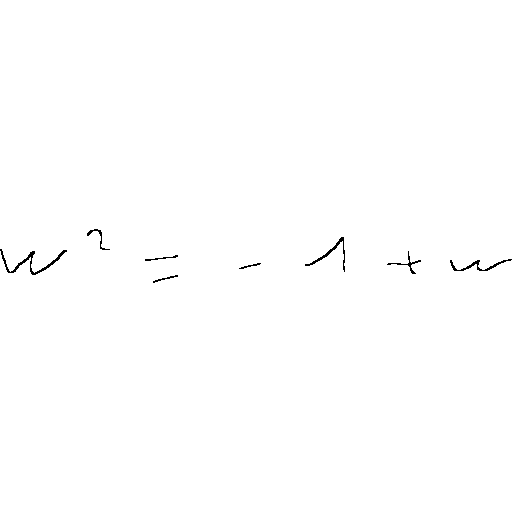 w² = - 1 + w